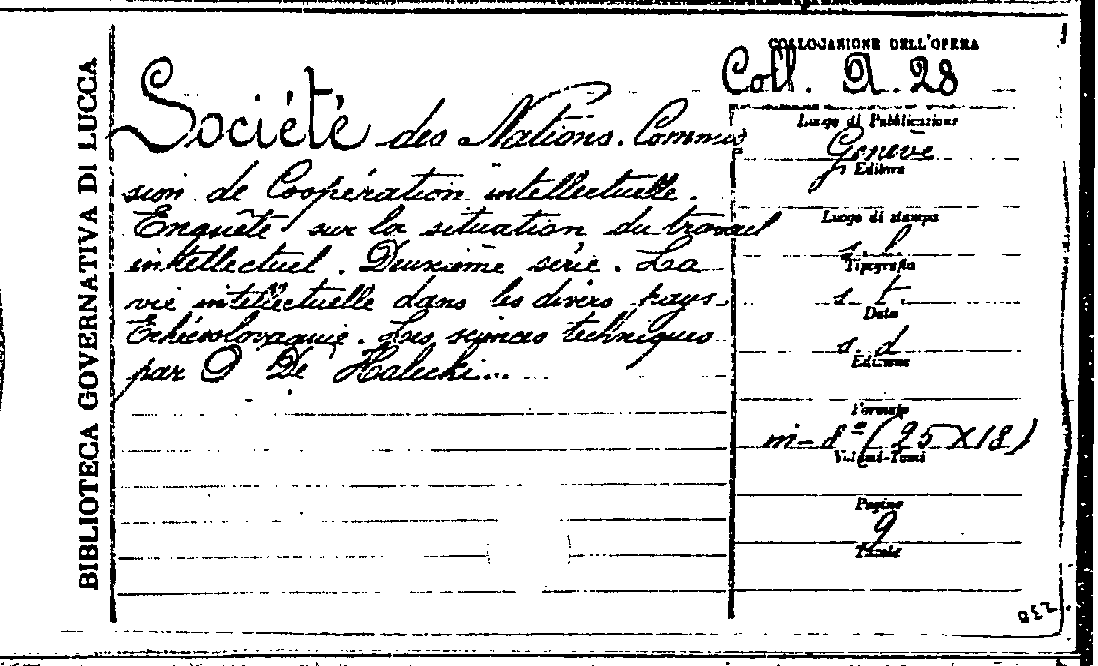 BIBLIOTECA GOVERNATIVA DI LUCCA
Société des Nations. Commis
sion de Coopération intellectuelle.
Enquête sur la situation du travail
intellectuel. Deuxième série. La
vie intellectuelle dans les divers pays.
Tchécoslovaquie. Les sciences techniques
par O De Halecki...
COLLOCAZIONE DELL'OPERA
Coll. A. 28
Luogo di Pubblicazione
Genève
Editore
Luogo di stampa
s. l.
Tipografia
s. t.
Data
s. d
Edizione
Formato
in-8º (25 X 18)
Volumi-Tomi
Pagine
9
Tavole